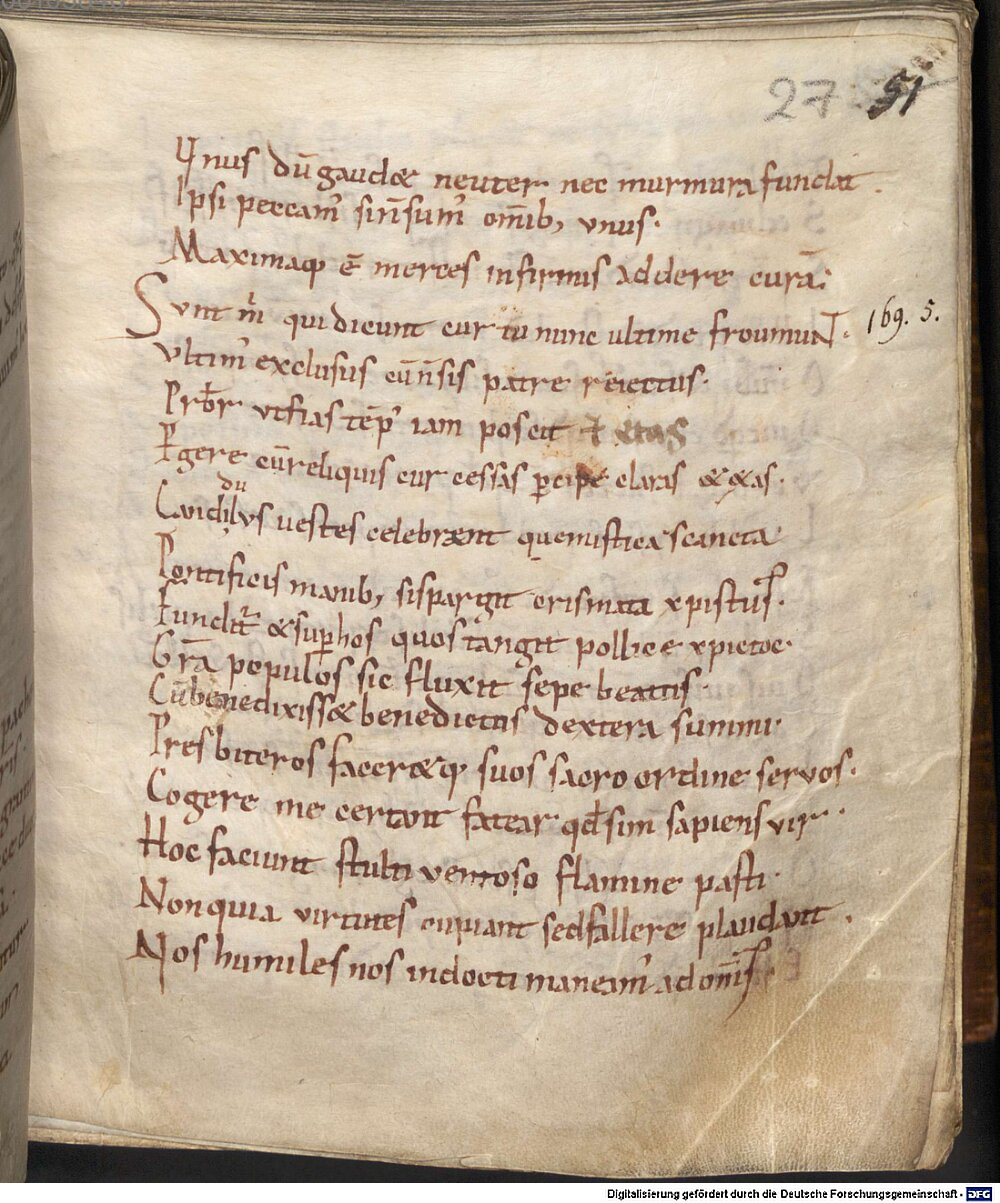 27 51
Vnus dū gaudet neuter nec murmura fundat.
Ipsi peccam' sin̄sum' om̄ib; vnus.
Maximaq; ē merces infirmis addere curā;
Sunt m̄ qui dicunt cur tu nunc ultime froumunT. 169. 5.
Vltim' exclusus cūn̄sis patre reiectus.
Prb̄r vt fias tēp' iam poscit & etas
Pgere cūreliquis cur cessas pcipe claras & &as.
Candilbus uestes celebrent que mistica sancta
du
Pontificis manib; si spargit crismata xpistus.
Fundit' & sup hos quos tangit pollice xpictoe.
Grā populos sic fluxit sepe beatis.
Cū benedixiss& benedictis dextera summi.
Presbiteros facer&q; suos sacro ordine servos.
Cogere me certant fatear qd sim sapiens vir.
Hoc faciunt stulti ventoso flamine pasti.
Non quia virtutes cupiant sed fallere plaudant.
Nos humiles nos indocti maneam' ad om̄is
Digitalisierung gefördert durch die Deutsche Forschungsgemeinschaft - DFG